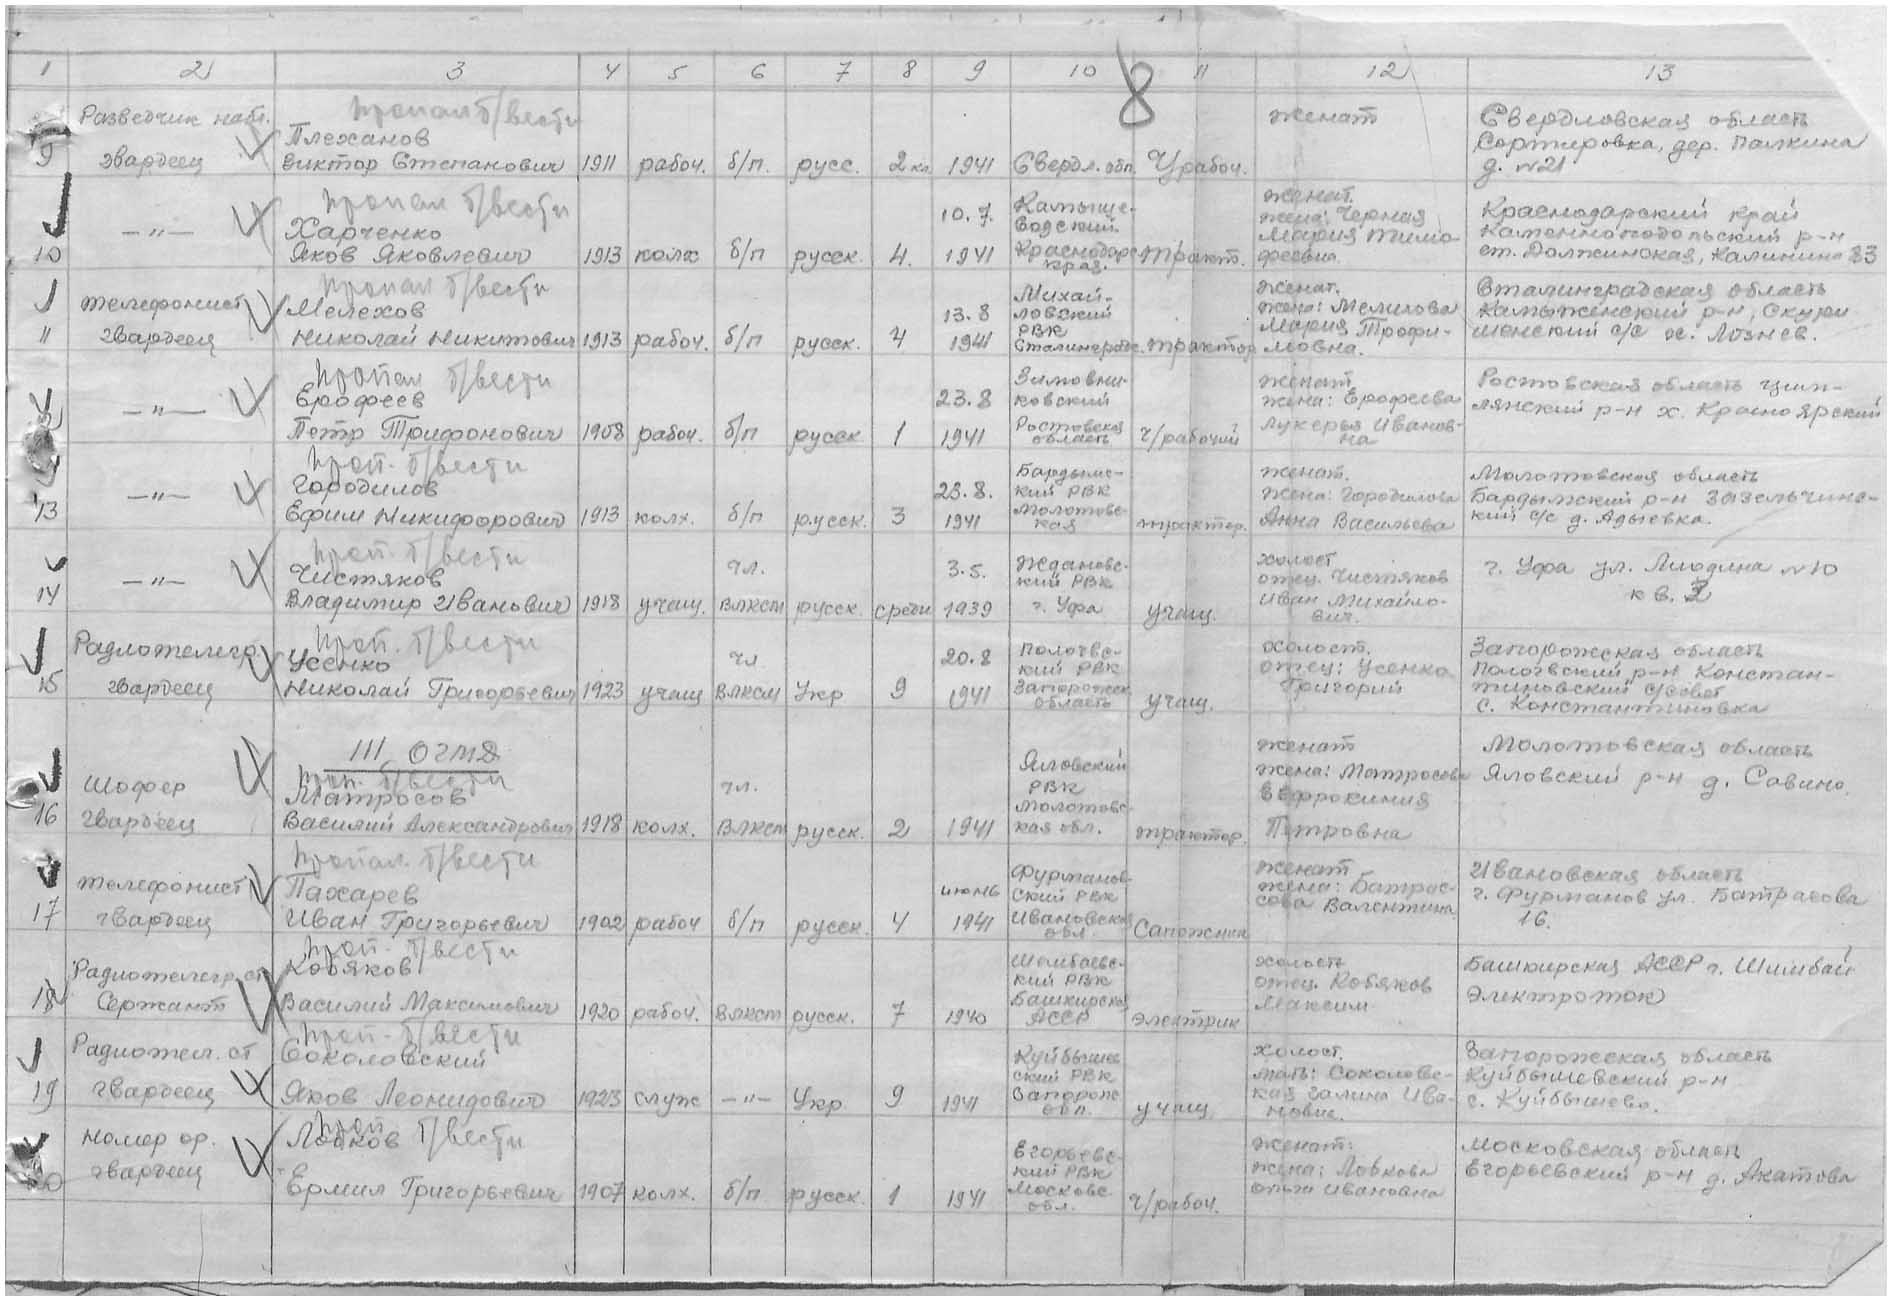 1 2 3 4 5 6 7 8 9 10 11 12 13
8
Разведчик набл. Пропал б/вести женат Свердловская область
Плеханов Сортировка, дер. Палкина
9 гвардеец Виктор Степанович 1911 рабоч. б/п. русс. 2 кл. 1941 Свердл. обл. Ч/рабоч. д. №21
Пропал б/вести женат.
10.7. Камыше- жена: Черная Краснодарский край
—"— Харченко водский Мария Тимо- р-н
10 Яков Яковлевич 1913 колх б/п русск. 4. 1941 Краснодарс. края. тракт. феевна. ст. Должинская, Калинина 83
Пропал б/вести женат. Сталинградская область
телефонист Мелехов 13.8 Михай- жена: Мелихова р-н, Скури
ловский РВК Мария Трофи- шенский с/с х. Лознев.
11 гвардеец Николай Никитович 1913 рабоч. б/п русск. 4 1941 Сталинградс. трактор мовна.
Пропал б/вести Зимовни- женат Ростовская область Цим-
—"— Ерофеев 23.8 ковский жена: Ерофеева лянский р-н х. Красноярский
Петр Трифонович 1908 рабоч. б/п русск 1 1941 Ростовская область ч/рабочий Лукерья Иванов-
на
Проп. б/вести Бардымс- женат. Молотовская область
—"— Городилов 23.8. кий РВК жена: Городилова Бардымский р-н
13 Ефим Никифорович 1913 колх. б/п русск. 3 1941 Молотовс- кая трактор. Анна Васильева кий с/с д. Адыевка.
Проп. б/вести холост
—"— Чистяков чл. 3.5. Ждановс- кий РВК отец. Чистяков г. Уфа ул. №10
14 Владимир Иванович 1918 учащ. ВЛКСМ русск. средн 1939 г. Уфа учащ. Иван Михайло- кв. 2
вич.
Проп. б/вести холост. Запорожская область
Радиотелегр. Усенко чл 20.8 Пологвс- кий РВК отец: Усенко Пологвский р-н Констан-
15 гвардеец Николай Григорьевич 1923 учащ ВЛКСМ Укр 9 1941 Запорожск область учащ. Григорий тиновский с/совет
с. Константиновка
III ОГМД женат Молотовская область
Проп. б/вести Яловский жена: Матросова Яловский р-н д. Савино.
Шофер Матросов чл. РВК Ефросиния
16 гвардеец Василий Александрович 1918 колх. ВЛКСМ русск. 2 1941 Молотовс- кая обл. трактор. Петровна
Пропал. б/вести женат Ивановская область
телефонист Пахарев июнь Фурманов- ский РВК жена: Батрас- г. Фурманов ул. Батрасова
17 гвардеец Иван Григорьевич 1902 рабоч б/п русск. 4 1941 Ивановская обл. Сапожник сова Валентина 16.
Проп. б/вести
Радиотелегр. ст Кобяков Шимбаевс- кий РВК холост Башкирская АССР г. Ишимбай
18 Сержант Василий Максимович 1920 рабоч. ВЛКСМ русск. 7 1940 Башкирская АССР электрик отец. Кобяков Максим Электроток
Проп. б/вести
Радиотел. ст Соколовский Куйбыше ский РВК холост. Запорожская область
19 гвардеец Яков Леонидович 1923 служ —"— Укр 9 1941 Запорож обл. учащ. мать: Соколовс- Куйбышевский р-н
кая Галина Ива- с. Куйбышево.
новна.
Проп б/вести
Номер ор. Лобков Егорьевс- кий РВК женат. Московская область
20 гвардеец Ермил Григорьевич 1907 колх. б/п. русск. 1 1941 Московс обл. ч/рабоч. жена: Лобкова Егорьевский р-н д. Акатова
Ольга Ивановна